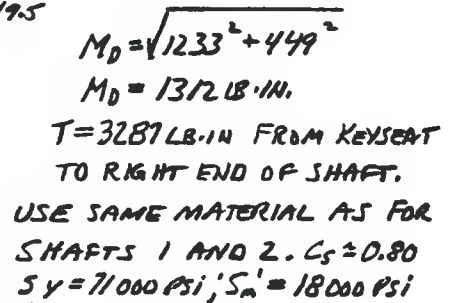 19.5
M_D = √1233² + 449²
M_D = 1312 LB·IN.
T = 3287 LB·IN FROM KEYSEAT
TO RIGHT END OF SHAFT.
USE SAME MATERIAL AS FOR
SHAFTS 1 AND 2. C_S ≅ 0.80
S y = 71000 PSi ; S_n' = 18000 PSi